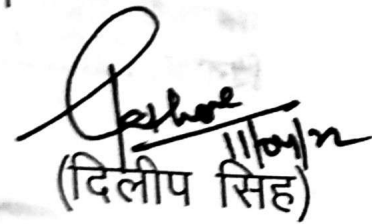 11/04/22
(दिलीप सिंह)